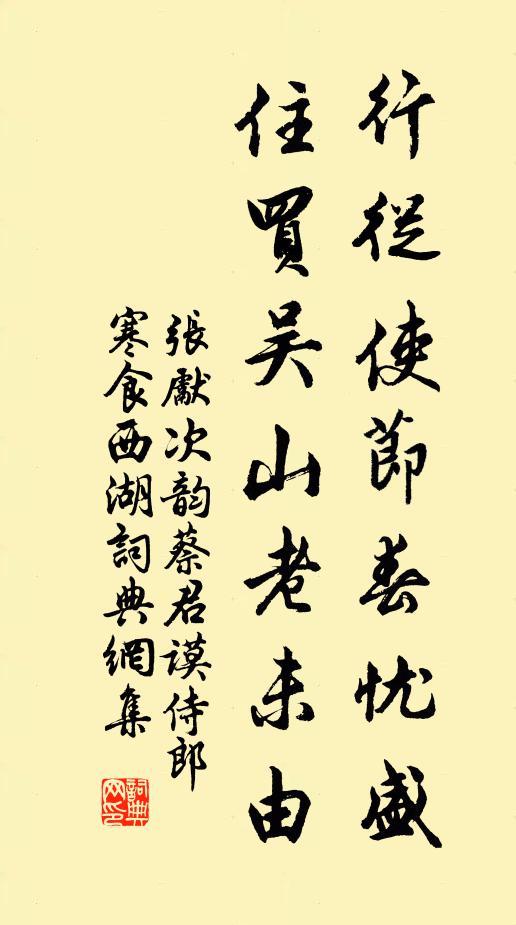 行從使節春忧盛
住買吴山老未由
張獻次韵蔡君謨侍郎
寒食西湖詞典網集
詞典
网印